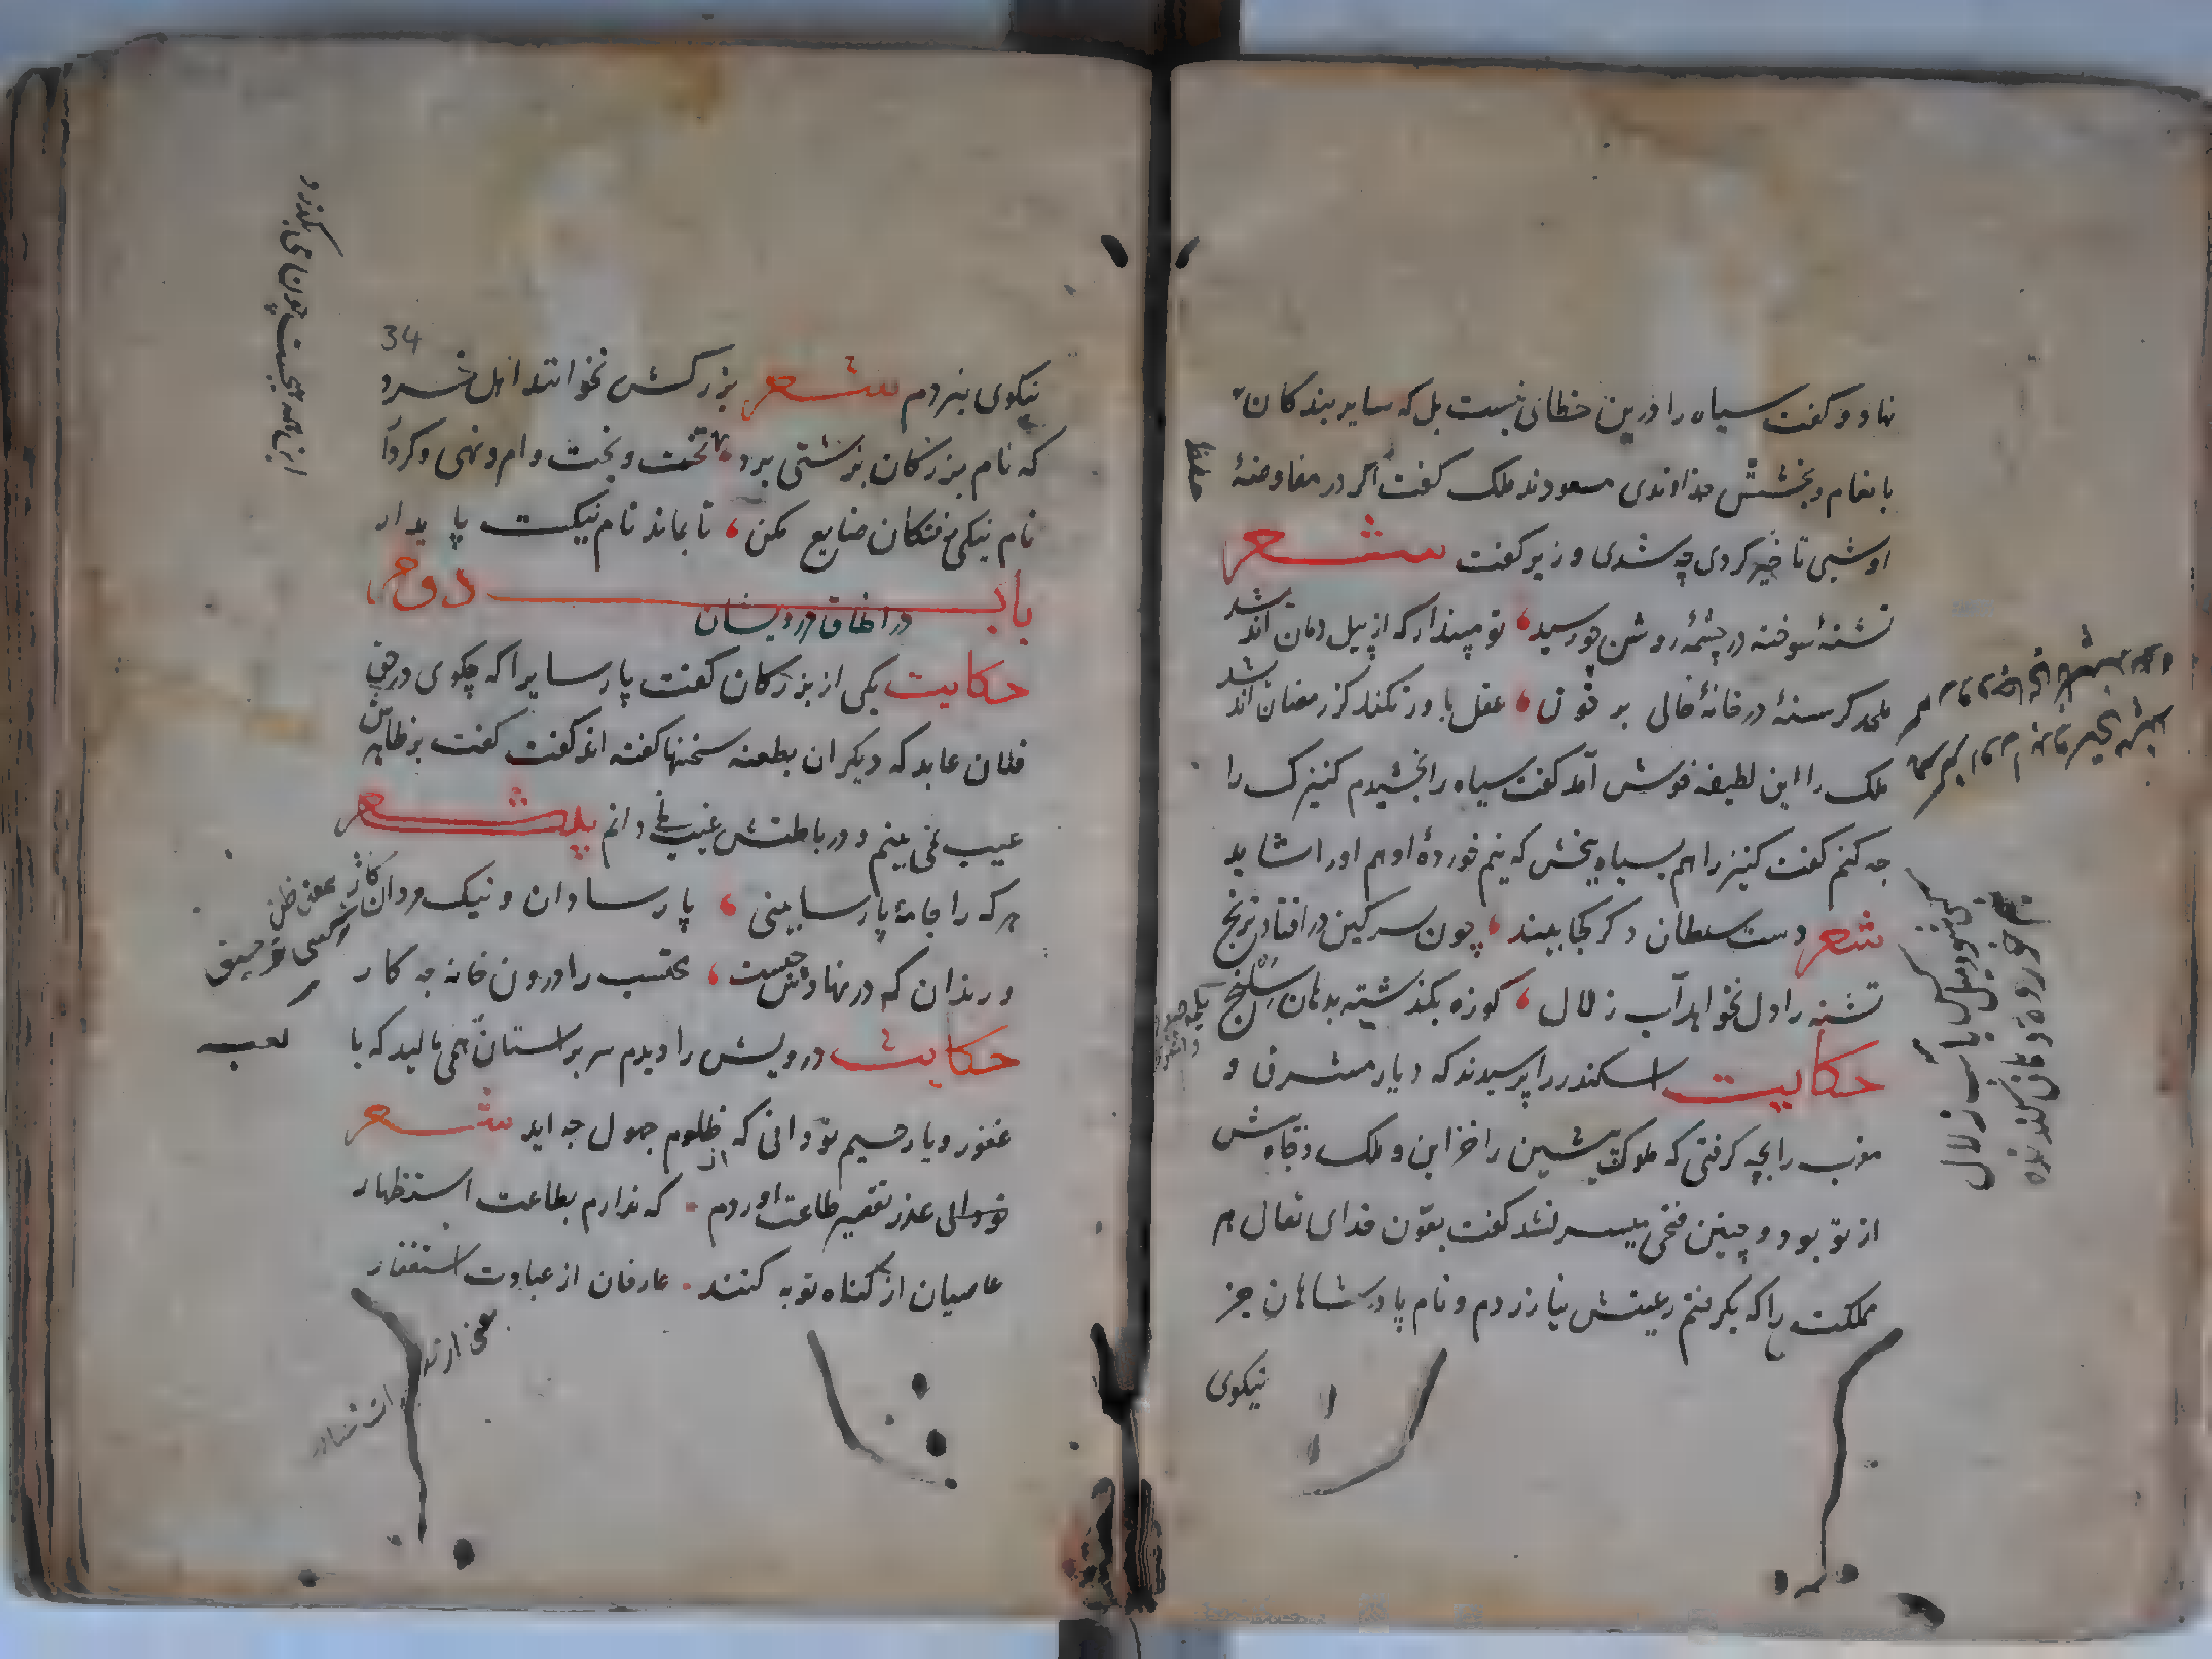 نهاد و کفت سیاه را درین خطائی نیست بل که سایر بندکان
بانعام و بخشش خداوندی مسعودند ملک کفت اکر در مفاوضهٔ
او شبی تاخیر کردی چه شدی وزیر کفت شعر
تشنهٔ سوخته در چشمهٔ روشن چو رسید، تو مپندار که از پیل دمان اندیشد
ملحد کرسنهٔ در خانهٔ خالی بر خوان، عقل باور نکند کز رمضان اندیشد
ملک را این لطیفه خوش آمد کفت سیاه را بخشیدم کنیزک را
چه کنم کفت کنیز را هم بسیاه بخش که نیم خوردهٔ او هم او را شاید
شعر دست سلطان دکر کجا بیند، چون سرکین در افتاد ترنج
تشنه را دل نخواهد آب زلال، کوزه بگذشته بدهان سکنج
حکایت اسکندر را پرسیدند که دیار مشرق و
مغرب را بچه کرفتی که ملوک پیشین را خزاین و ملک
از تو بود و چنین فتحی میسر نشد کفت بعون خدای تعالی هر
مملکت را که بکرفتم رعیتش نیازردم و نام پادشاهان جز
نیکوی
نیم خورده دهان کندیده
کی خورد دل آب زلال
34
نیکوی نبردم شعر بزرکش نخوانند اهل خرد
که نام بزرکان بزشتی برد، تخت و بخت و امر و نهی و کردار
نام نیکی رفتکان ضایع مکن، تا بماند نام نیکت پایدار
باب دوم
در اخلاق درویشان
حکایت یکی از بزرکان کفت پارسایرا که چکوی در حق
فلان عابد که دیکران بطعنه سخنها کفته اند کفت بر ظاهرش
عیب نمی بینم و در باطنش غیب نمی دانم شعر
هر که را جامهٔ پارسا بینی، پارسا دان و نیک مرد انکار
ور ندانی که در نهادش چیست، محتسب را درون خانه چه کار
حکایت درویش را دیدم سر بر استان همی مالید که یا
غفور و یا رحیم تو دانی که از ظلوم جهول چه اید شعر
عذر تقصیر طاعت اوردم. که ندارم بطاعت استظهار
عاصیان از کناه توبه کنند. عارفان از عبادت استغفار